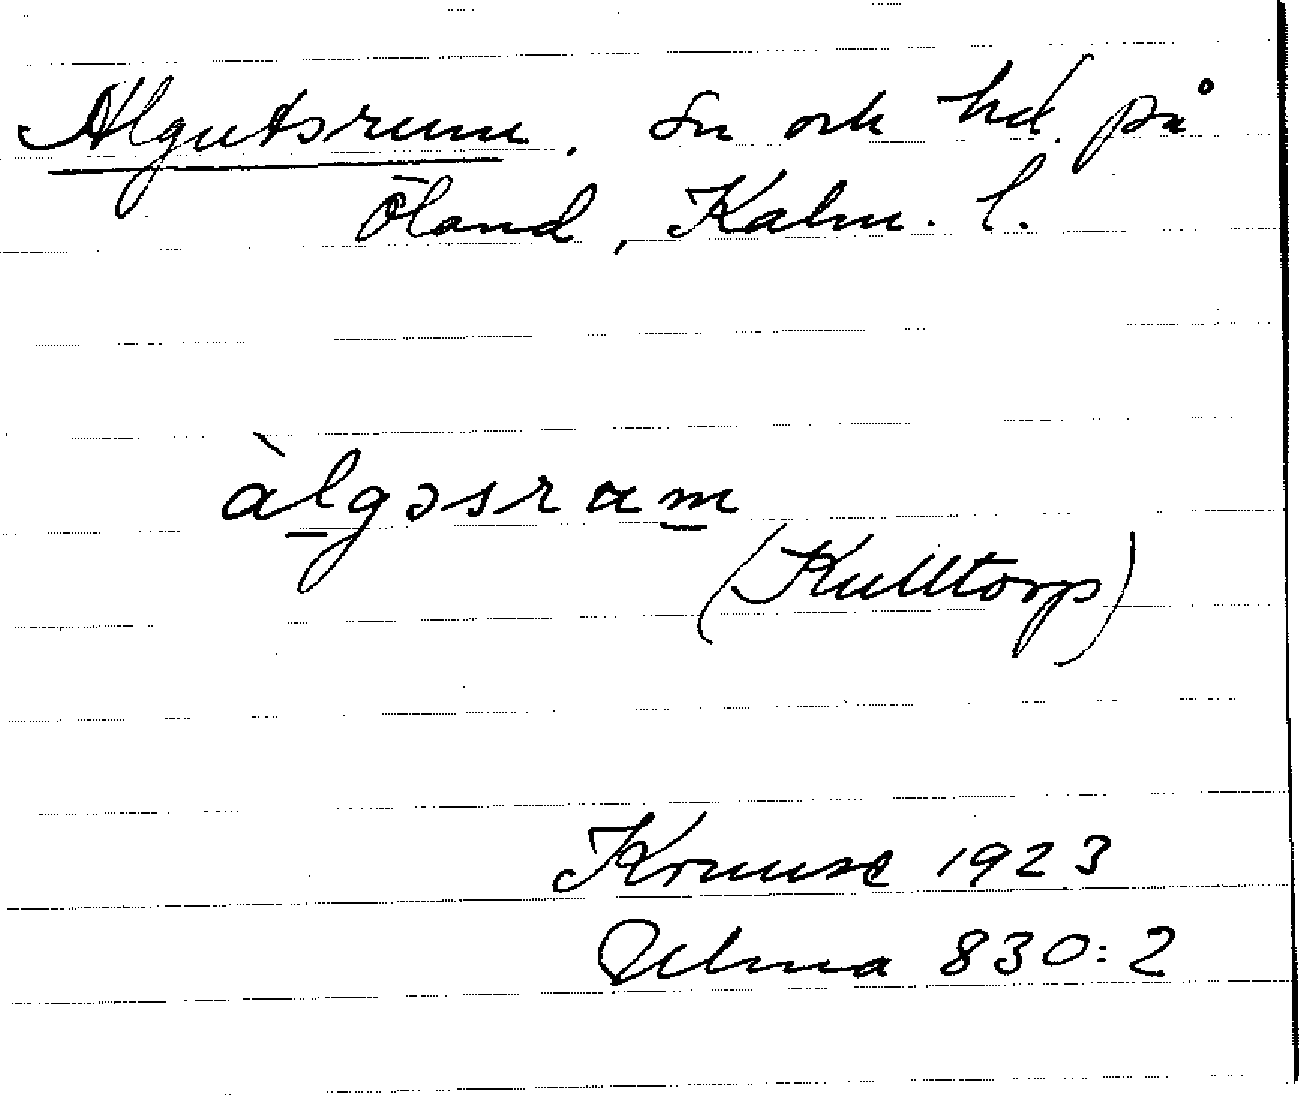 Algutsrum. Sn och hd. på
Öland, Kalm. l.
àlgəsram
(Kulltorp)
Kruuse 1923
Ulma 830:2